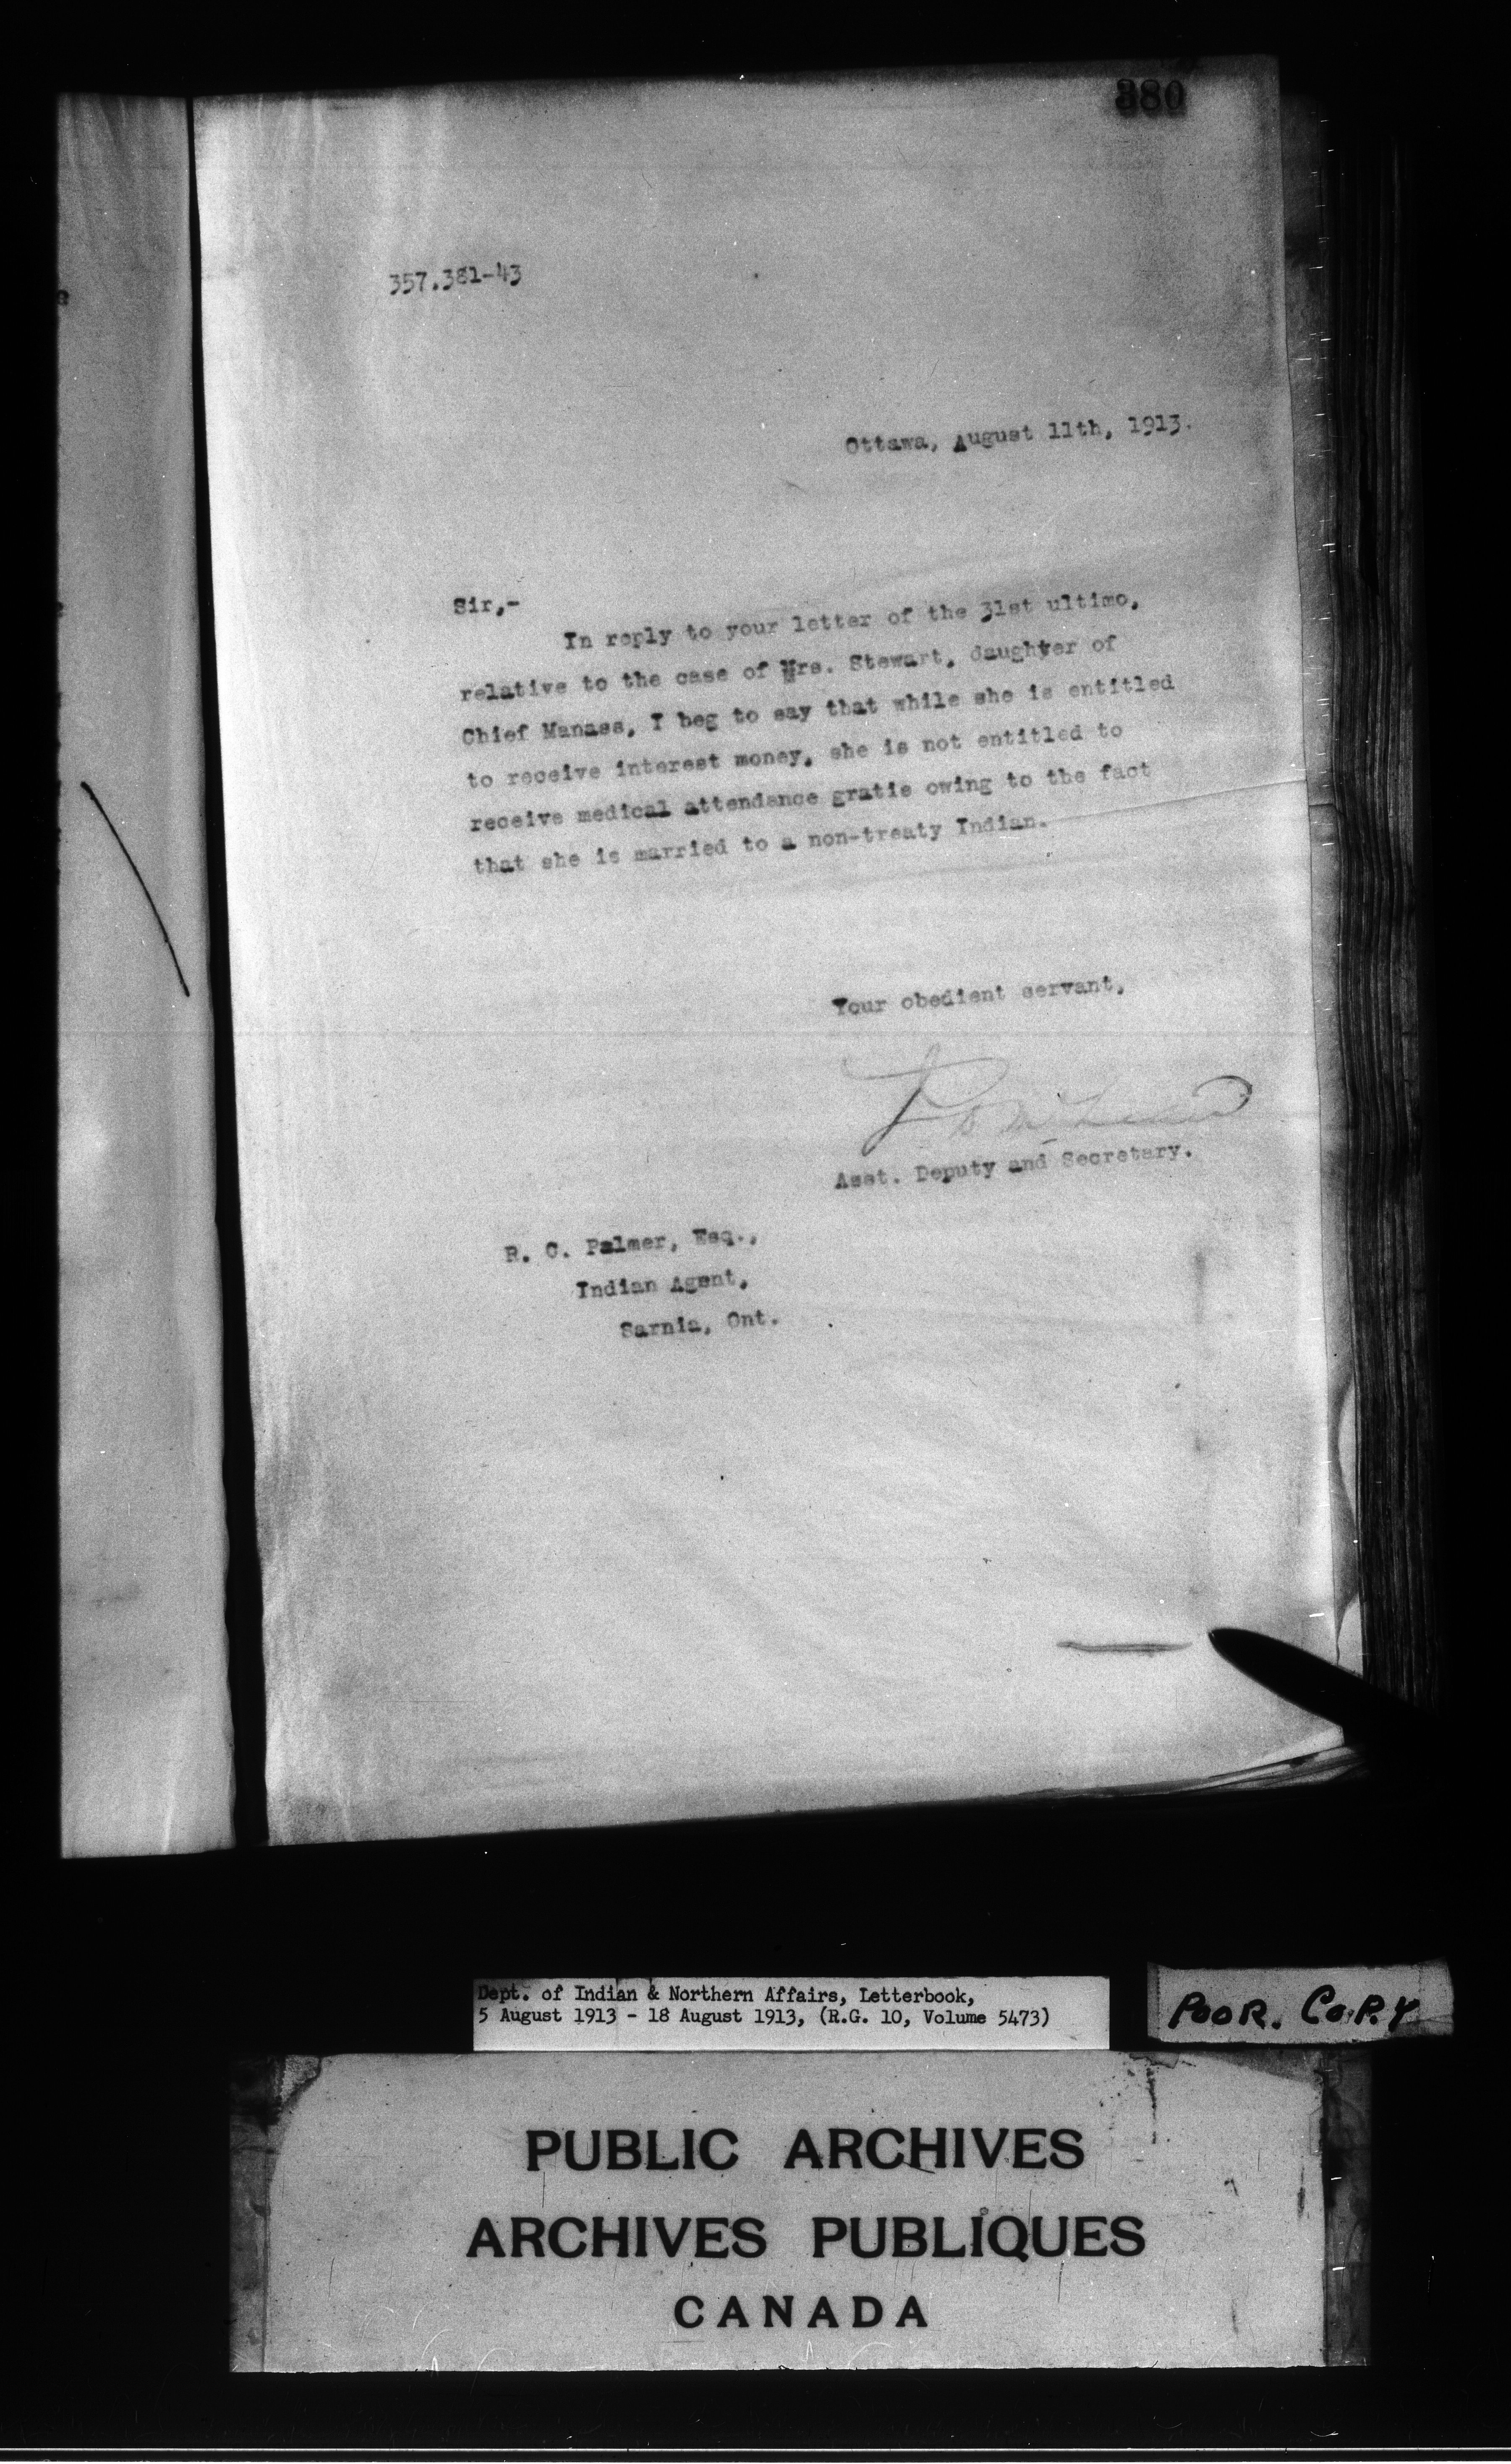 380
357.381-43
Ottawa, August 11th, 1913.
Sir,-
In reply to your letter of the 31st ultimo,
relative to the case of Mrs. Stewart, daughter of
Chief Manass, I beg to say that while she is entitled
to receive interest money, she is not entitled to
receive medical attendance gratis owing to the fact
that she is married to a non-treaty Indian.
Your obedient servant,
Asst. Deputy and Secretary.
R. C. Palmer, Esq.,
Indian Agent,
Sarnia, Ont.
Dept. of Indian & Northern Affairs, Letterbook,
5 August 1913 - 18 August 1913, (R.G. 10, Volume 5473)
POOR. COPY
PUBLIC ARCHIVES
ARCHIVES PUBLIQUES
CANADA